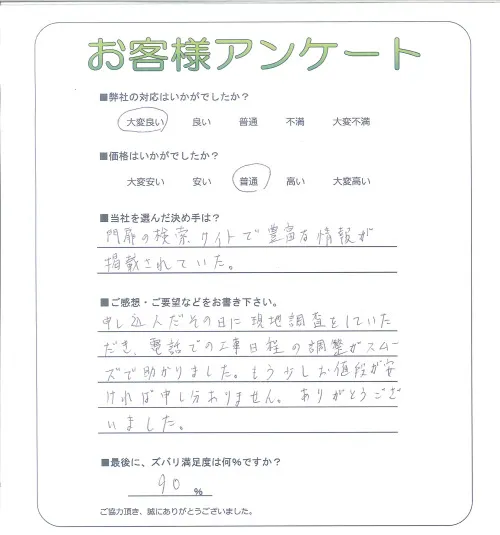 お客様アンケート
■弊社の対応はいかがでしたか？
大変良い 良い 普通 不満 大変不満
■価格はいかがでしたか？
大変安い 安い 普通 高い 大変高い
■当社を選んだ決め手は？
門扉の検索サイトで豊富な情報が
掲載されていた。
■ご感想・ご要望などをお書き下さい。
申し込んだその日に現地調査をしていた
だき、電話での工事日程の調整がスムー
ズで助かりました。もう少しお値段が安
ければ申し分ありません。ありがとうござ
いました。
■最後に、ズバリ満足度は何%ですか？
90 %
ご協力頂き、誠にありがとうございました。